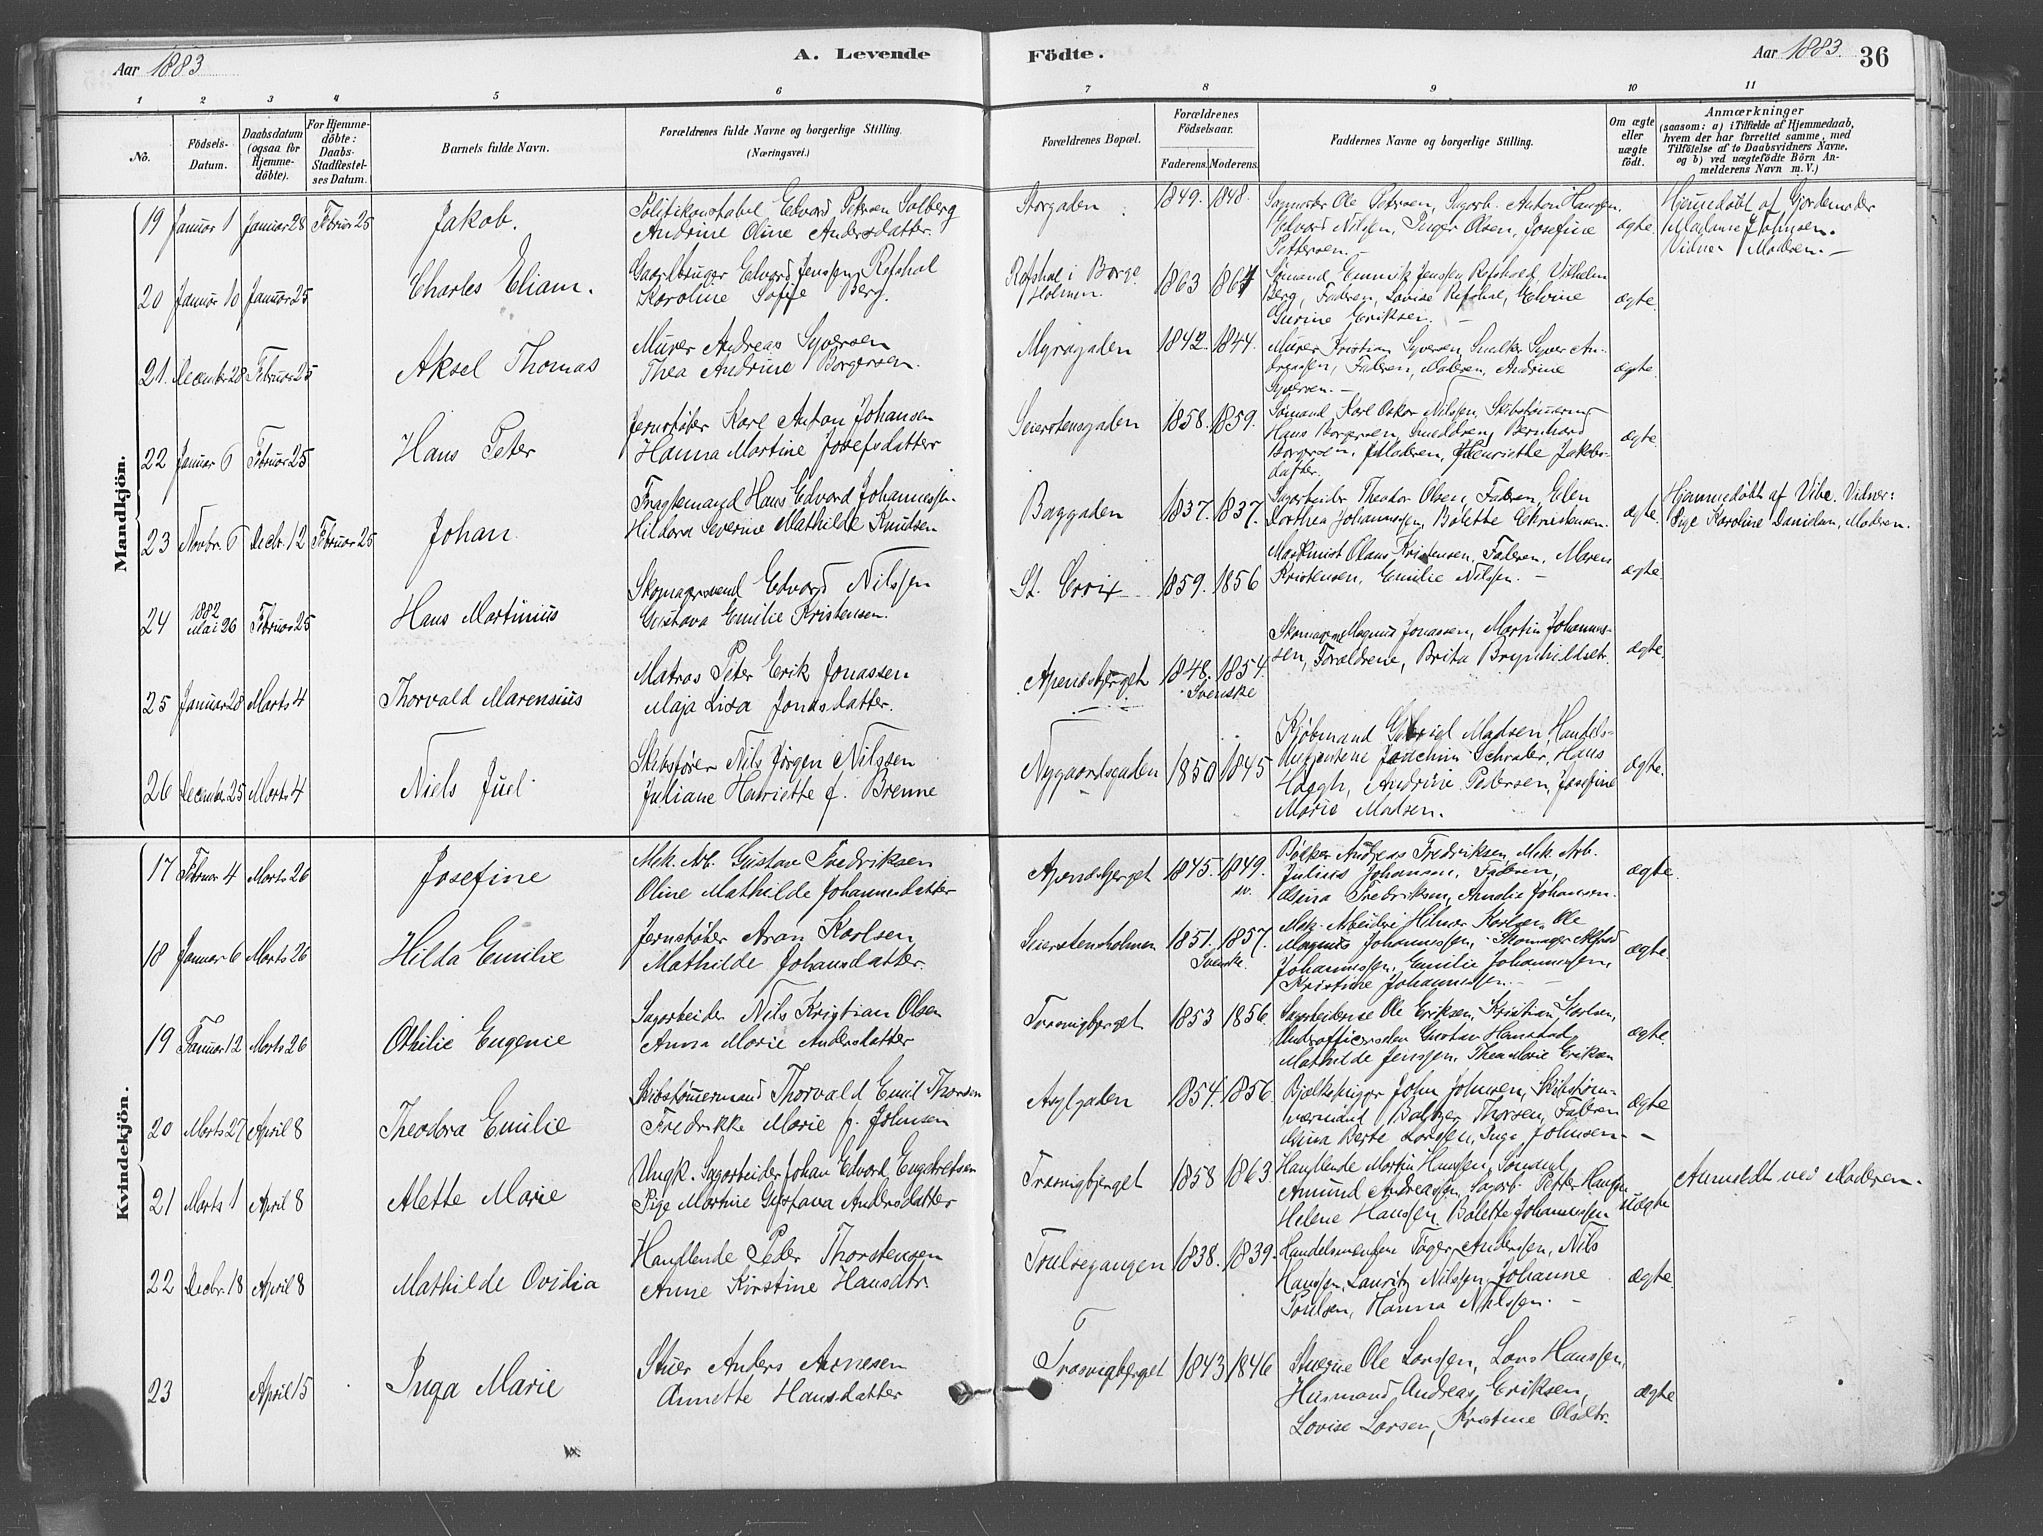 Aar 1883
A. Levende
Födte.
Aar 1883.
36
1 2 3 4 5 6 7 8 9 10 11
No.
Födsels-
Datum.
Daabsdatum
(ogsaa for
Hjemme-
döbte).
For Hjemme-
döbte:
Daabs-
Stadfæstel-
ses Datum.
Barnets fulde Navn.
Forældrenes fulde Navne og borgerlige Stilling.
(Næringsvei.)
Forældrenes Bopæl.
Forældrenes
Födselsaar.
Faderens. Moderens.
Faddernes Navne og borgerlige Stilling.
Om ægte
eller
uægte
födt.
Anmærkninger
(saasom: a) i Tilfælde af Hjemmedaab,
hvem der har forrettet samme, med
Tilföielse af to Daabsvidners Navne.
og b) ved uægtefödte Börn An-
melderens Navn m. V.)
Mandkjön.
19 Januar 1 Januar 28 Februar 25 Jakob.
Politikonstabel Edvard Petersen Solberg
Andrine Oline Andersdatter.
Storgaden 1849. 1848.
Ole Petersen, Sagarb. Anton Hansen,
Edvard Nilsen, Inger Olsen, Josefine
Pettersen
ægte.
Hjemmedöbt af Gjordemoder
Madame Johnsen.
Vidner Moderen. —
20 Januar 10 Januar 25 Charles Eliam.
Gaardbruger Edvard Jensen Refshal
Karoline Sofie Berg.
Refshal i Borge
Holmen. 1863 1864
Sömand Emmik Jenssen Refshold, Vilhelm
Berg, Faderen, Lovise Refshal, Elvine
Gurine Eriksen. —
ægte.
21. December 28 Februar 25 Aksel Thomas
Murer Andreas Syversen
Thea Andrine Borgersen.
Myragaden 1842. 1844.
Murer Kristian Syversen, Syver An-
dreassen, Faderen, Moderen, Andrine
Syversen. —
ægte.
22 Januar 6 Februar 25 Hans Peter
Jernstöber Karl Anton Johansen
Hanna Martine Josefsdatter
Seierstensgaden 1858. 1859.
Sömand Karl Oskar Nilssen, Skibstömermd
Hans Borgersen, Bernhard
Borgersen, Moderen, Henriette Jakobs-
datter.
ægte.
23 Novbr. 6 Decbr. 12 Februar 25 Johan
Fragtemand Hans Edvard Johannessen
Hildora Severine Mathilde Knudsen
Baggaden 1837. 1837.
Sagarbeider Theodor Olsen, Faderen, Elen
Dorthea Johannessen, Bolette Christensen.
ægte.
Hjemmedöbt af Vibe. Vidner:
Pige Karoline Moderen.
24 1882
Mai 26 Februar 25 Hans Martinius
Skomagersvend Edvard Nilssen
Gustava Emilie Kristensen.
St. Croix 1859. 1856
Maskinist Olaus Kristensen, Faderen, Maren
Kristensen, Emilie Nilssen. —
ægte.
25 Januar 28 Marts 4 Thorvald Marensius
Matros Peter Erik Jonassen
Maja Lisa Jonasdatter.
Apenesbjerget 1848. 1854.
Svenske
Skomager Magnus Jonassen, Martin Johannes-
sen, Forældrene, Brita Brynhildset.
ægte.
26 December 25 Marts 4 Niels Juel.
Skibsförer Nils Jörgen Nilssen
Juliane Henriette f. Brenne
Nygaardsgaden 1850 1845
Kjöbmand Gabriel Madsen, Handels-
Joachim Schrader, Hans
Haagh, Andrine Pedersen, Josefine
Marie Madsen.
ægte.
Kvindekjön.
17 Februar 4 Marts 26 Josefine
Mek. Arb. Gustav Fredriksen
Oline Mathilde Johannesdatter
Apenesbjerget 1845. 1849.
sv.
Bölker Andreas Fredriksen, Mek. Arb.
Julius Johansen, Faderen,
Fredriksen, Amalie Johansen.
ægte.
18 Januar 6 Marts 26 Hilda Emilie
Jernstöber Aron Karlsen
Mathilde Johansdatter.
Seierstensholmen 1851. 1857.
Svensk.
Mek. Arbeidere Hilmar Karlsen, Ole
Magnus Johannessen, Skomager Alfred
Johannessen, Emilie Johannessen,
Kristine Johannessen. —
ægte.
19 Januar 12 Marts 26 Othilie Eugenie
Sagarbeider Nils Kristian Olsen
Anna Marie Andersdatter
Trosvigbjerget 1853 1856.
Sagarbeiderne Ole Eriksen, Kristian Karlsen,
Underofficer Gustav Hanstad
Mathilde Jenssen, Thea Marie Eriksen
ægte.
20 Marts 27 April 8 Theodora Emilie
Skibstömermand Thorvald Emil Thorsen
Fredrikke Marie f. Johnsen
Asylgaden 1854. 1856.
Bjelkehugger John Johnsen, Skibstöm-
mermand Thorsen, Faderen
Berte Larssen, Inga Johnsen —
ægte
21 Marts 1 April 8 Alette Marie
Ungk. Sagarbeider Johan Edvard Engebretsen
Pige Martine Gustava Andersdatter
Trosvigbjerget 1858 1863
Handlende Martin Hanssen, Sömand
Amund Andreassen, Sagarb. Petter Hanssen,
Helene Hanssen, Bolette Johannessen
uægte
Anmeldt ved Moderen.
22 Decbr. 18 April 8 Mathilde Ovidia
Handlende Peder Thorstensen
Anne Kirstine Hansdtr.
Trulsegangen 1838. 1839.
Handelsmand Andersen, Nils
Hanssen, Lauritz Nilssen, Johanne
Poulsen, Hanna Nilssen. —
ægte.
23 April 15 Inga Marie
Stuer Anders Arnesen
Annette Hansdatter
Trosvigbjerget 1843 1846
Stuerne Ole Larssen, Lars Hanssen,
Husmand Andreas Eriksen,
Lovise Larsen, Kristine Olsdtr.
ægte